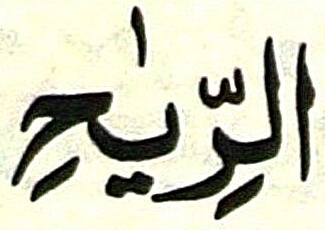 الرِّيٰحِ